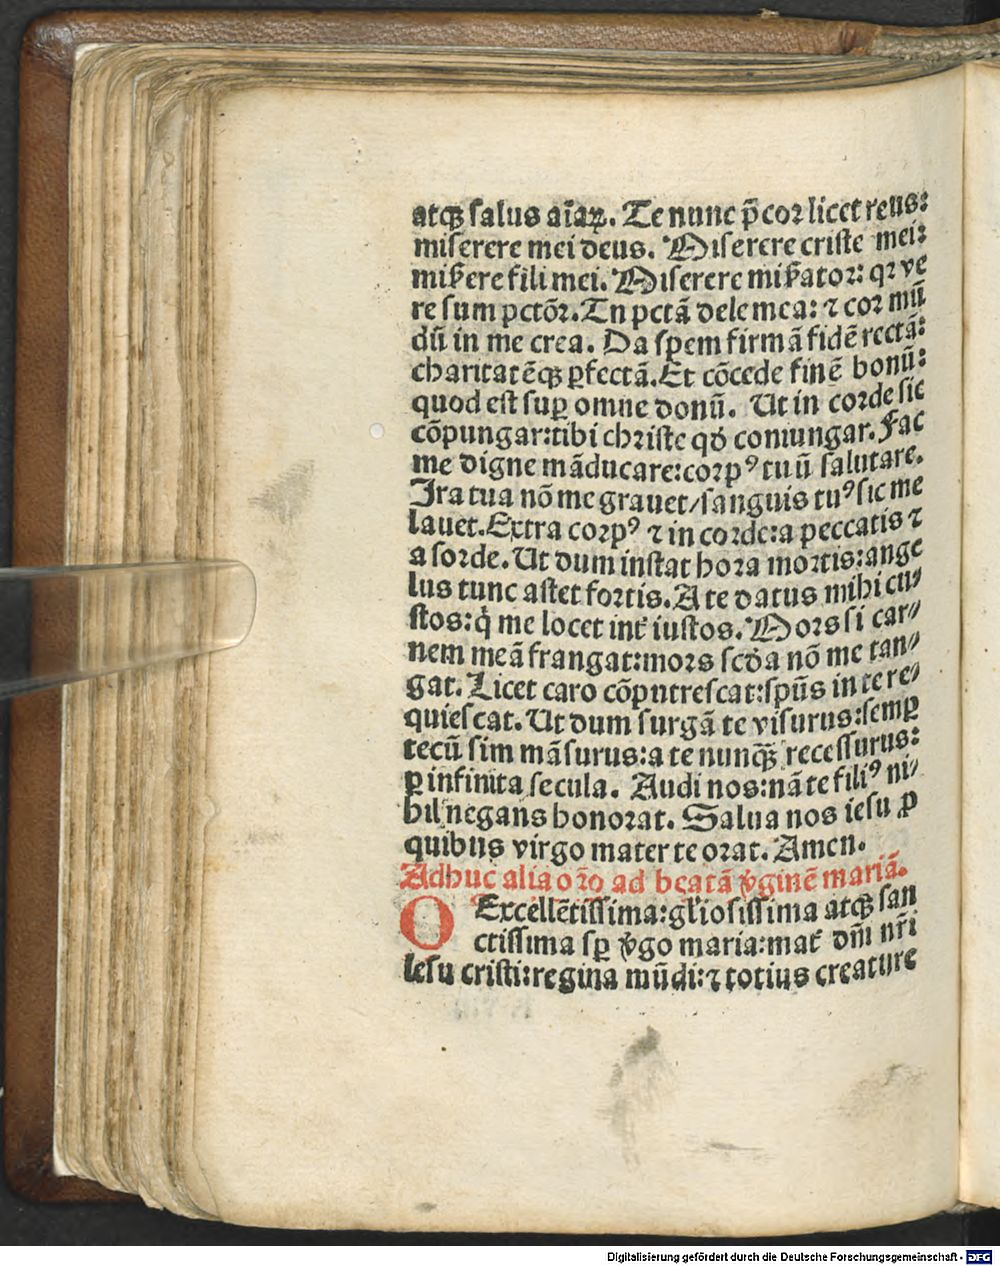 atqꝫ salus aīaꝝ. Te nunc p̄cor licet reus:
miserere mei deus. Miserere criste mei:
miẜere fili mei. Miserere miẜator: qꝛ ve
re sum pctōꝛ. Tu pctā dele mea: ⁊ cor mū
dū in me crea. Da spem firmā fidē rectā:
charitatēqꝫ ꝑfectā. Et cōcede finē bonū:
quod est suꝑ omne donū. Ut in corde sic
cōpungar: tibi christe qꝺ coniungar. Fac
me digne māducare: corpꝰ tuū salutare.
Ira tua nō me grauet/ sanguis tuꝰ sic me
lauet. Extra corpꝰ ⁊ in corde: a peccatis ⁊
a sorde. Ut dum instat hora mortis: ange
lus tunc astet fortis. A te datus mihi cu⸗
stos: q̇ me locet int̄ iustos. Mors si car⸗
nem meā frangat: mors scꝺa nō me tan⸗
gat. Licet caro cōputrescat: spūs in te re⸗
quiescat. Ut dum surgā te visurus: semꝑ
tecū sim māsurus: a te nunqꝫ̄ recessurus:
ꝑ infinita secula. Audi nos: nā te filiꝰ ni⸗
hil negans honorat. Salua nos iesu ꝓ
quibus virgo mater te orat. Amen.
Adhuc alia orō ad beatā v̓ginē mariā.
O Excellētissima: gl̓iosissima atqꝫ san
ctissima sꝑ v̓go maria: mat̓ dn̄i nr̄i
Iesu cristi: regina mūdi: ⁊ totius creature
Digitalisierung gefördert durch die Deutsche Forschungsgemeinschaft - DFG